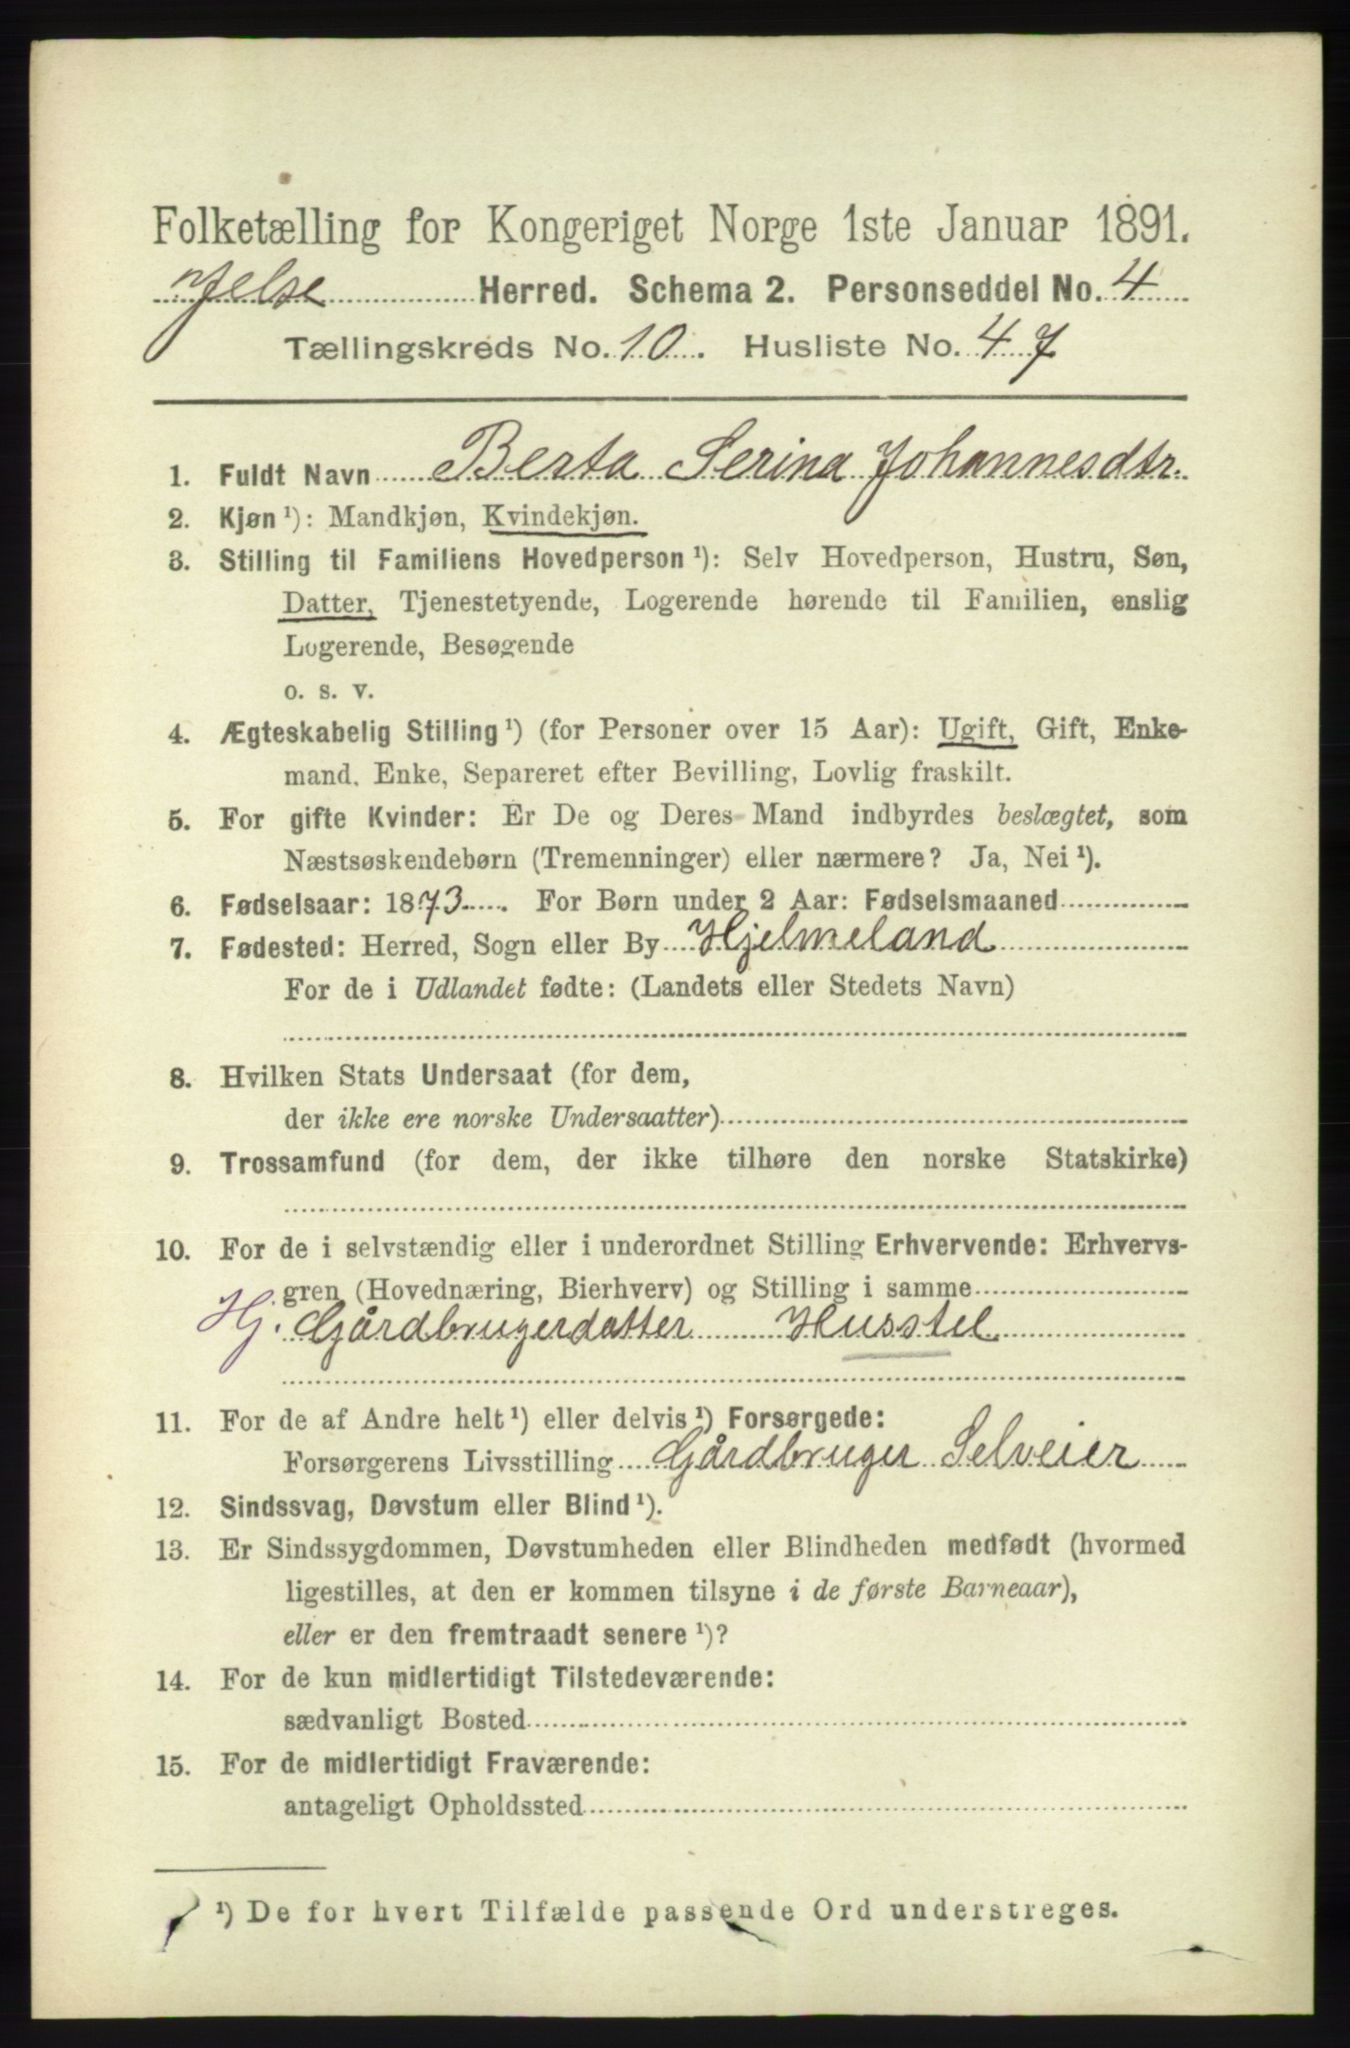 Folketælling for Kongeriget Norge 1ste Januar 1891.
Jelse Herred. Schema 2. Personseddel No. 4
Tællingskreds No. 10. Husliste No. 47
1. Fuldt Navn Berta Serina Johannesdtr.
2. Kjøn ¹): Mandkjøn, Kvindekjøn.
3. Stilling til Familiens Hovedperson ¹): Selv Hovedperson, Hustru, Søn,
Datter, Tjenestetyende, Logerende hørende til Familien, enslig
Logerende, Besøgende
o. s. v.
4. Ægteskabelig Stilling ¹) (for Personer over 15 Aar): Ugift, Gift, Enke-
mand, Enke, Separeret efter Bevilling, Lovlig fraskilt.
5. For gifte Kvinder: Er De og Deres Mand indbyrdes beslægtet, som
Næstsøskendebørn (Tremenninger) eller nærmere? Ja, Nei ¹).
6. Fødselsaar: 1873. For Børn under 2 Aar: Fødselsmaaned
7. Fødested: Herred, Sogn eller By Hjelmeland
For de i Udlandet fødte: (Landets eller Stedets Navn)
8. Hvilken Stats Undersaat (for dem,
der ikke ere norske Undersaatter)
9. Trossamfund (for dem, der ikke tilhøre den norske Statskirke)
10. For de i selvstændig eller i underordnet Stilling Erhvervende: Erhvervs-
gren (Hovednæring, Bierhverv) og Stilling i samme
Hj. Gårdbrugerdatter Husstel
11. For de af Andre helt ¹) eller delvis ¹) Forsørgede:
Forsørgerens Livsstilling Gårdbruger Selveier
12. Sindssvag, Døvstum eller Blind ¹).
13. Er Sindssygdommen, Døvstumheden eller Blindheden medfødt (hvormed
ligestilles, at den er kommen tilsyne i de første Barneaar),
eller er den fremtraadt senere ¹)?
14. For de kun midlertidigt Tilstedeværende:
sædvanligt Bosted
15. For de midlertidigt Fraværende:
antageligt Opholdssted
¹) De for hvert Tilfælde passende Ord understreges.